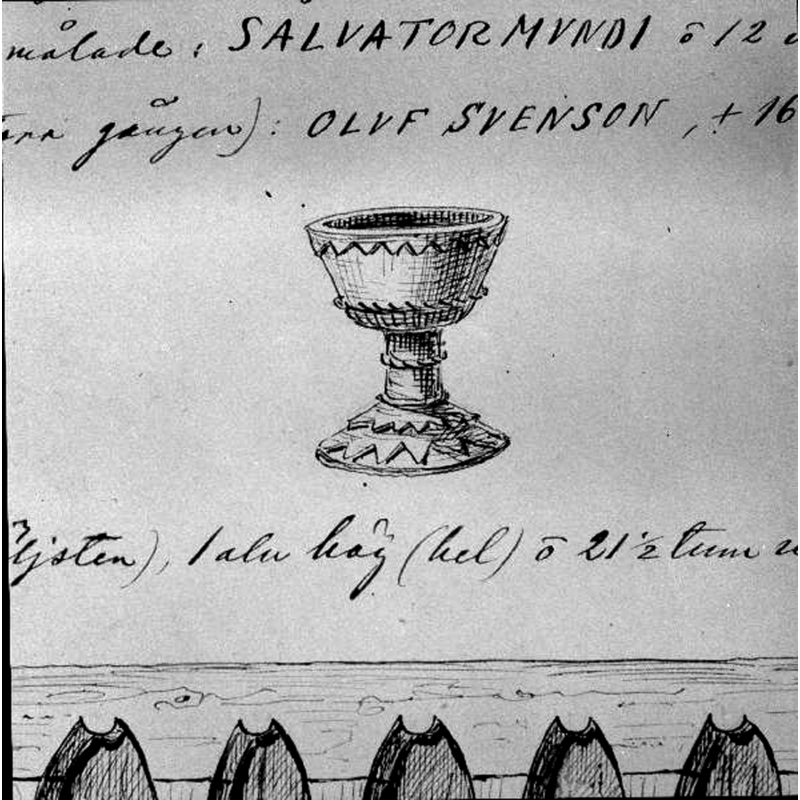 målade: SALVATOR MVNDI ō 12
gången): OLVF SVENSON, + 16
ljsten), 1 aln hög (hel) ō 21 ½ tum